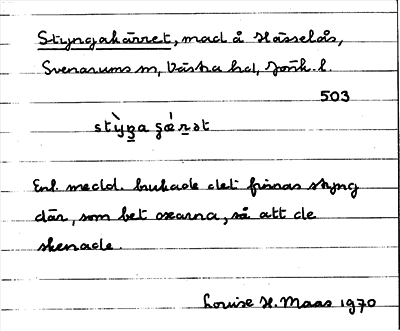 Styngakärret, mad å Hässelås,
Svenarums sn, Västra hd, Jönk. l.
503
stỳŋa ɕǽrət
Enl. medd. brukade det finnas styng
där, som bet oxarna, så att de
skenade.
Louise H. Maas 1970